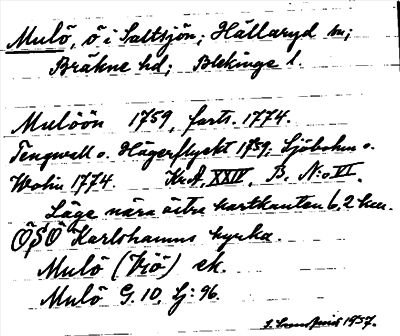 Mulö, ö i Saltsjön; Hällaryd sn;
Bräkne hd; Blekinge l.
Mulöön 1759, farts. 1774.
Tengwall o. Hägerflyckt 1759; Sjöbohm o.
Wolin 1774. Kr.A, XXIV, B, N:o VI.
Läge nära östre kartkanten 6,2 km
ÖSÖ Karlshamns kyrka.
Mulö (Viö) ek.
Mulö G. 10. Lj: 96.
1957.